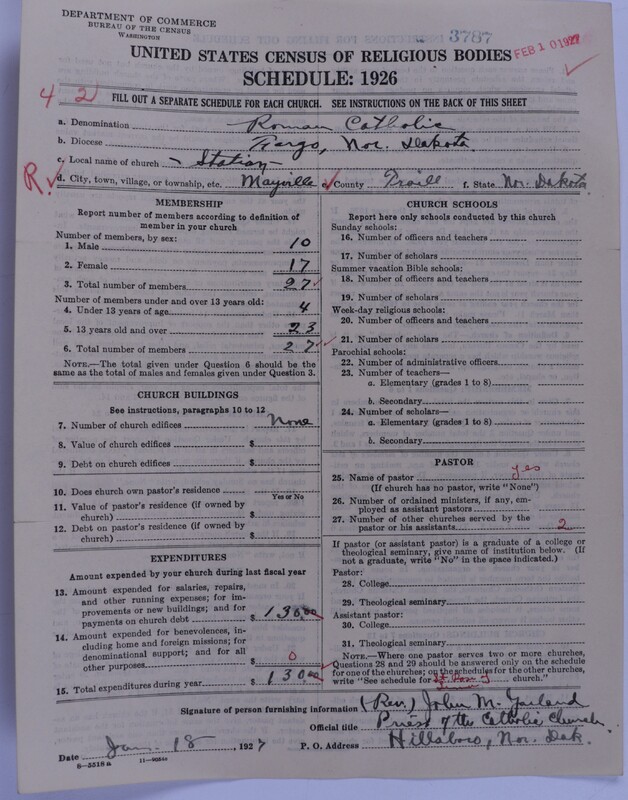 DEPARTMENT OF COMMERCE
BUREAU OF THE CENSUS
WASHINGTON
3787
UNITED STATES CENSUS OF RELIGIOUS BODIES
FEB 10 1927
SCHEDULE: 1926
4 2
FILL OUT A SEPARATE SCHEDULE FOR EACH CHURCH. SEE INSTRUCTIONS ON THE BACK OF THIS SHEET
a. Denomination Roman Catholic
b. Diocese Fargo, Nor. Dakota.
c. Local name of church - Station -
R. d. City, town, village, or township, etc. Mayville e. County Traill f. State Nor. Dakota
MEMBERSHIP
Report number of members according to definition of
member in your church
Number of members, by sex:
1. Male 10
2. Female 17
3. Total number of members 27
Number of members under and over 13 years old:
4. Under 13 years of age 4
5. 13 years old and over 23
6. Total number of members 27
NOTE.—The total given under Question 6 should be
same as the total of males and females given under Question 3.
CHURCH BUILDINGS
See instructions, paragraphs 10 to 12
7. Number of church edifices None
8. Value of church edifices $
9. Debt on church edifices $
10. Does church own pastor's residence
Yes or No
11. Value of pastor's residence (if owned by
church) $
12. Debt on pastor's residence (if owned by
church) $
EXPENDITURES
Amount expended by your church during last fiscal year
13. Amount expended for salaries, repairs,
and other running expenses; for im-
provements or new buildings; and for
payments on church debt $ 130.00
14. Amount expended for benevolences, in-
cluding home and foreign missions; for
denominational support; and for all
other purposes $ 0
15. Total expenditures during year $ 130.00
CHURCH SCHOOLS
Report here only schools conducted by this church
Sunday schools:
16. Number of officers and teachers
17. Number of scholars
Summer vacation Bible schools:
18. Number of officers and teachers
19. Number of scholars
Week-day religious schools:
20. Number of officers and teachers
21. Number of scholars
Parochial schools:
22. Number of administrative officers
23. Number of teachers—
a. Elementary (grades 1 to 8)
b. Secondary
24. Number of scholars—
a. Elementary (grades 1 to 8)
b. Secondary
PASTOR
25. Name of pastor yes
(If church has no pastor, write "None")
26. Number of ordained ministers, if any, em-
ployed as assistant pastors
27. Number of other churches served by the
pastor or his assistants 2
If pastor (or assistant pastor) is a graduate of a college or
theological seminary, give name of institution below. (If
not a graduate, write "No" in the space indicated.)
Pastor:
28. College
29. Theological seminary
Assistant pastor:
30. College
31. Theological seminary
NOTE.—Where one pastor serves two or more churches,
Questions 28 and 29 should be answered only on the schedule
for one of the churches; on the schedules for the other churches,
write "See schedule for church."
Signature of person furnishing information (Rev.) John M. Garland
Official title Priest of the Catholic Church.
Date Jan. 18, 1927 P. O. Address Hillsboro, Nor. Dak.
8-5518a